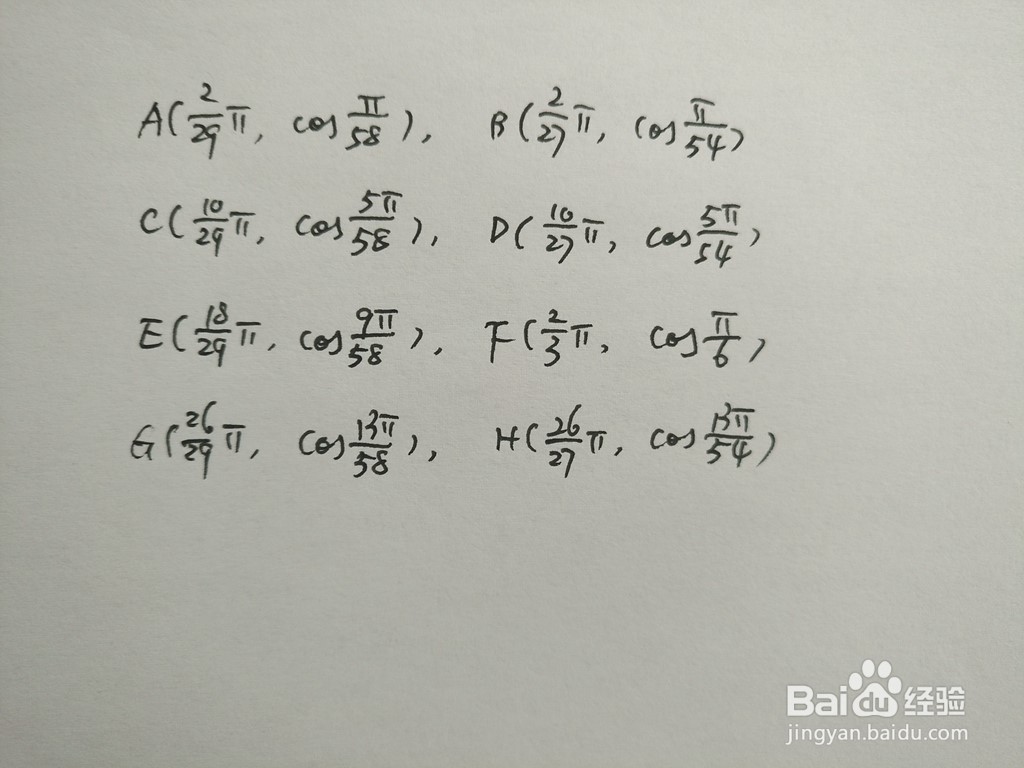 A(2/29 π, cos π/58), B(2/27 π, cos π/54)
C(10/29 π, cos 5π/58), D(10/27 π, cos 5π/54)
E(18/29 π, cos 9π/58), F(2/3 π, cos π/6)
G(26/29 π, cos 13π/58), H(26/27 π, cos 13π/54)
Bai du 经验
jingyan.baidu.com